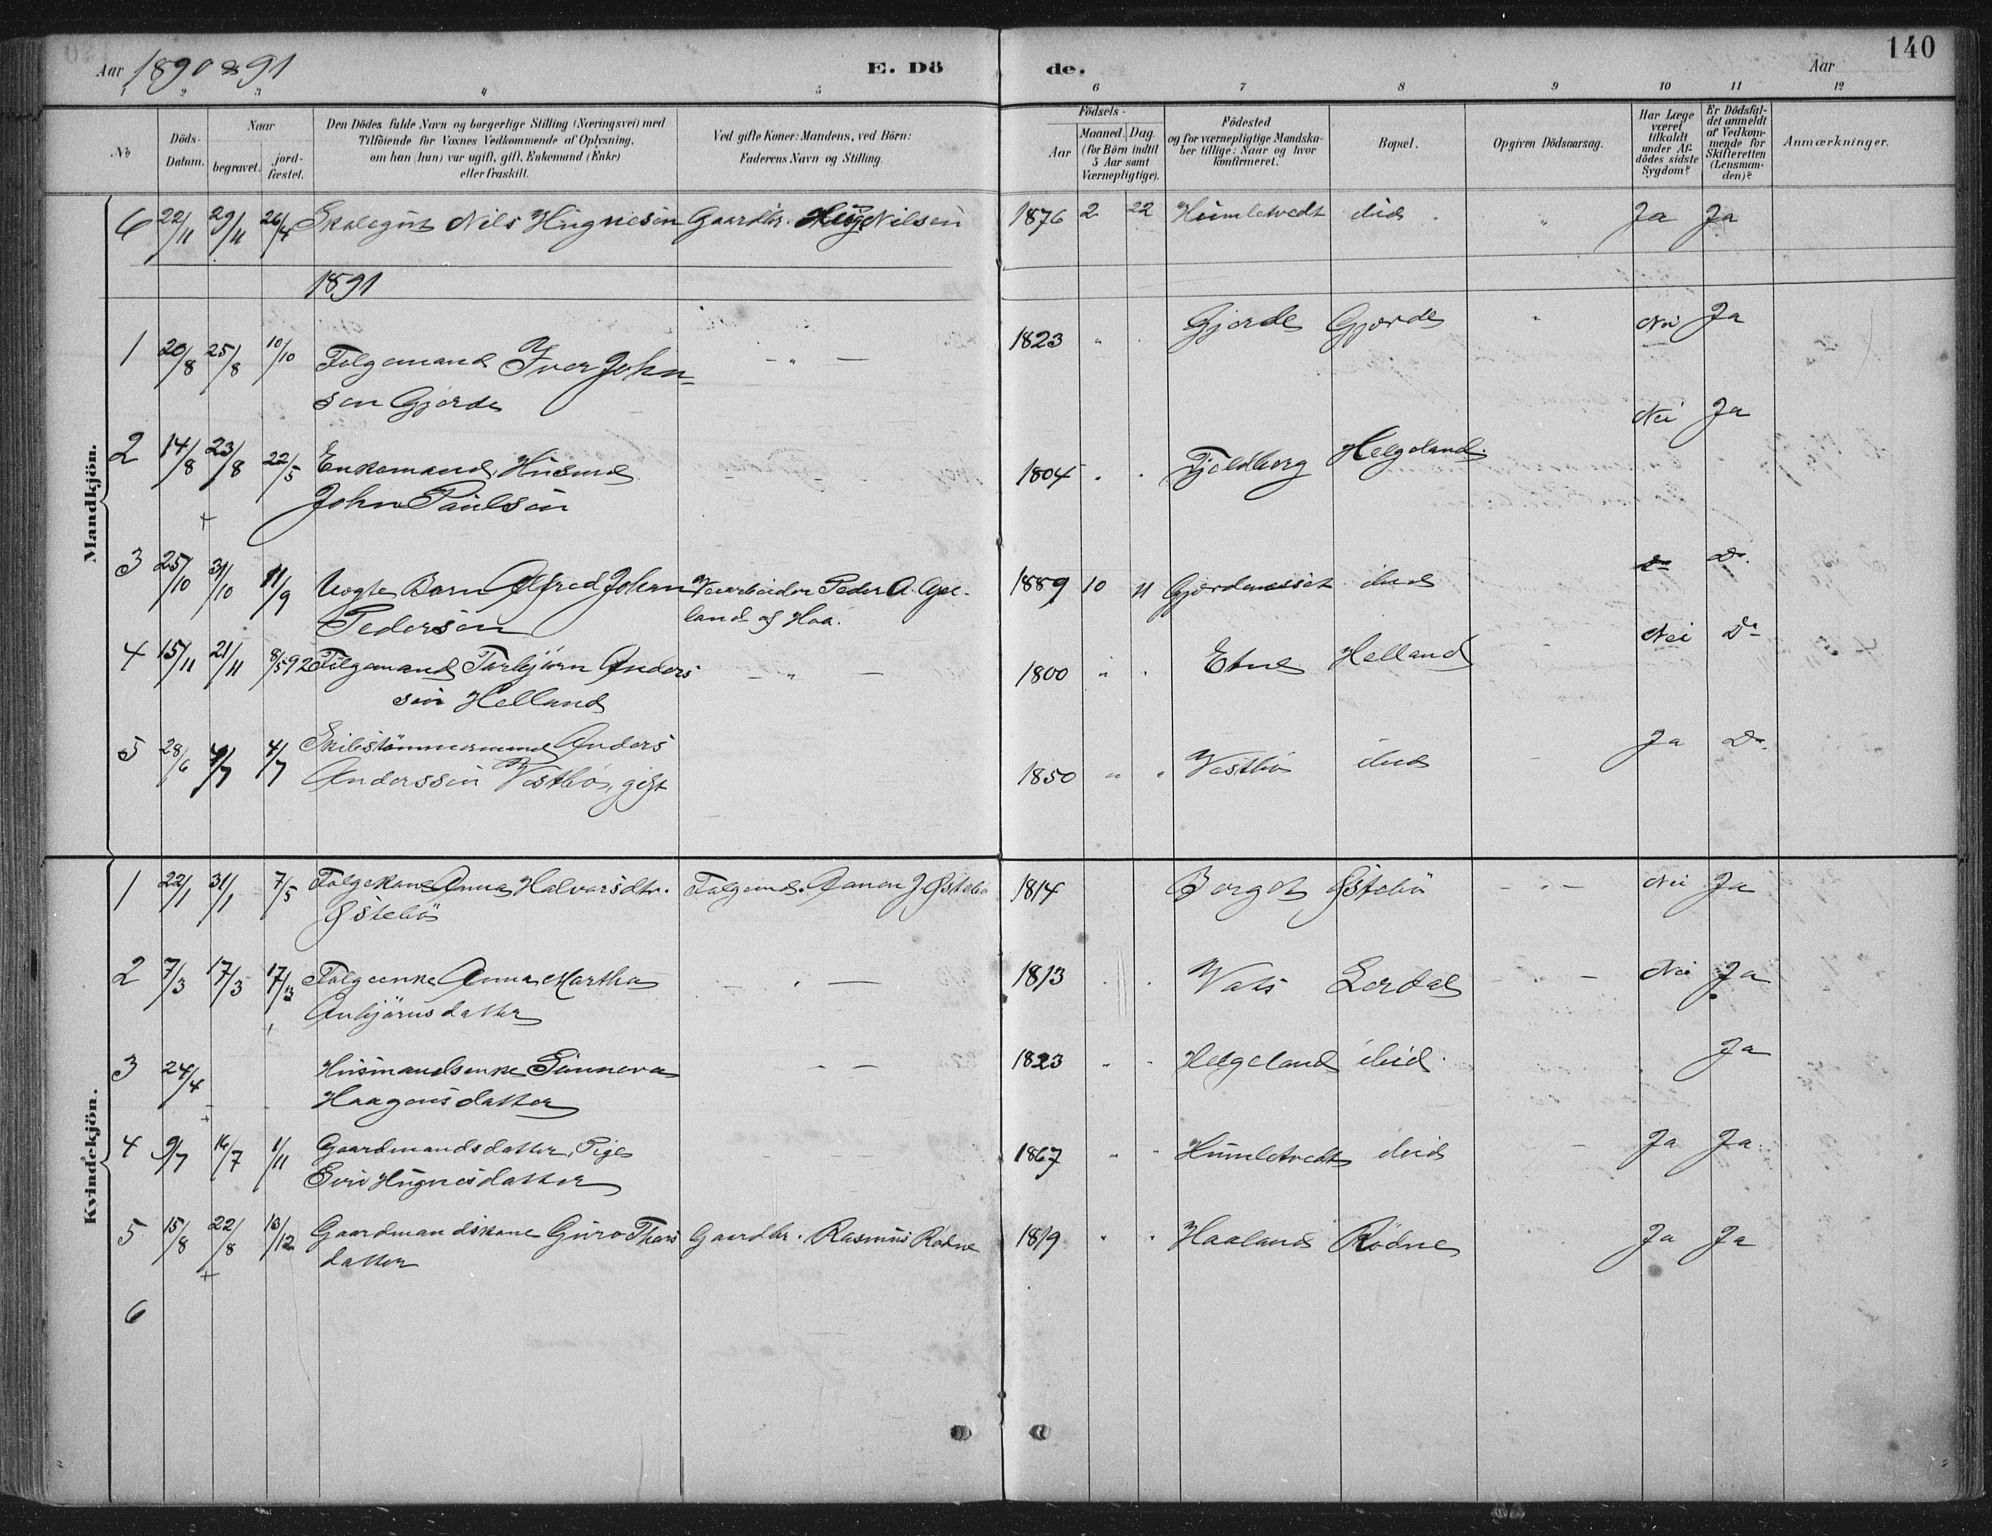 140
Aar 1890 & 91 E. Dö de. Aar
1 2 3 4 5 6 7 8 9 10 11 12
No
Döds-Datum.
Naar
begravet.
jord-fæstet.
Den Dödes fulde Navn og borgerlige Stilling (Næringsvei) med
Tilföiende for Voxnes Vedkommende af Oplysning,
om han (hun) var ugift, gift, Enkemand (Enke)
eller fraskilt.
Ved gifte Koner: Mandens, ved Börn:
Faderens Navn og Stilling.
Födsels-
Aar
Maaned. Dag.
(for Börn indtil
5 Aar samt
Værnepligtige).
Födested
og for værnepligtige Mandska-
ber tillige: Naar og hvor
konfirmeret.
Bopæl.
Opgiven Dödsaarsag.
Har Læge
været
tilkaldt
under Af-
dödes sidste
Sygdom?
Er Dödsfal-
det anmeldt
af Vedkom-
mende for
Skifteretten
(Lensman-
den)?
Anmærkninger.
Mandkjön.
6 22/11 29/11 26/4 Skolegut Nils Hugnesön Gaardbr. Nilsen 1876 2 22 Humletvedt ibid " Ja Ja
1891
1 20/8 25/8 10/10 Folgemand Iver John- — " — 1823 " Gjerde Gjerde " Nei Ja
sen Gjerde
2 14/8 23/8 22/5 Enkemand, Husmd 1804 " " Fjeldborg Helgeland Nei Ja
John Paulsen
3 25/10 31/10 11/9 Uægte Barn Alfred Johan Veiarbeider Peder A. Ape- 1889 10 11 ibid Do Do
Pedersen land af Haa.
4 15/11 21/11 8/5 92 Folgemand Torbjörn Anders- — " — 1800 " " Etne Helland Nei Do
sen Helland
5 28/6 4/7 4/7 Skibstömmermand Anders 1850 " " Vestbö ibid Ja Do
Anderssen Vestbö, gift
Kvindekjön.
1 22/1 31/1 7/5 Folgekone Anna Halvorsdtr. Folgemd. Aanen J. Östebö 1814 Borget Östebö — " — Nei Ja
Östebö
2 7/3 17/3 17/3 Folgeenke Anna Martha — " — 1813 Vats Lerdal Nei Ja
Anbjörnsdatter
3 24/4 Husmandsenke Sunneva 1823 " " Helgeland ibid. Ja
Haagensdatter
4 9/7 16/7 1/11 Gaardmandsdatter, Pige 1867 " " Humletvedt ibid Ja Ja
Siri Hugnesdatter
5 15/8 22/8 13/12 Gaardmandskone Guro Thors Gaardbr. Rasmus Rödne 1819 " " Haaland Rödne Ja Ja
datter
6